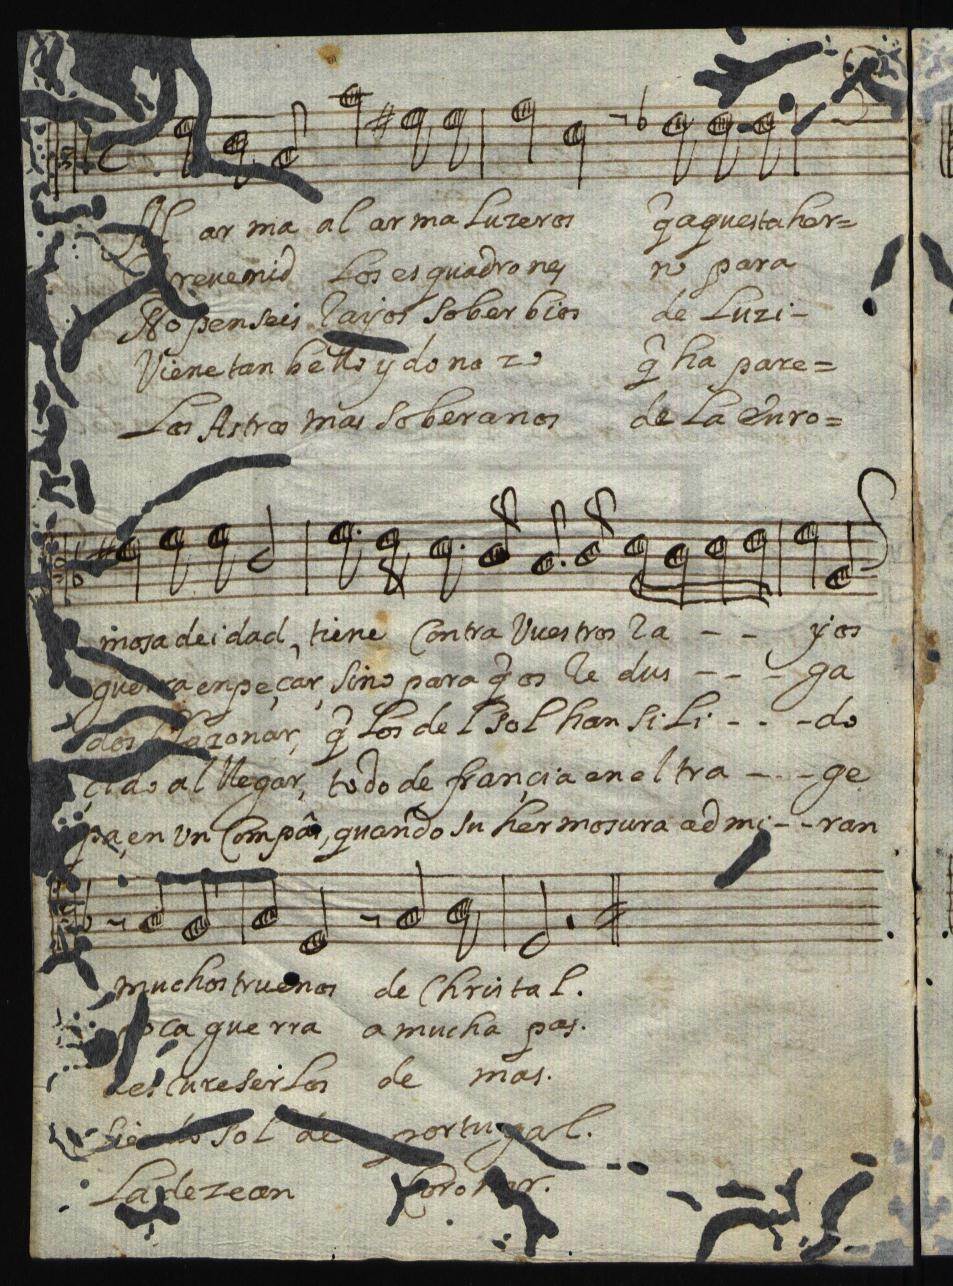 Al ar ma al ar ma Luzeros q̃ aquesta her=
Prevenid Los esquadrones no para
No penseis Rayos Soberbios de Luzi-
Viene tan bello y dono zo q̃ ha pare=
Los Astros mas Soberanos de La Euro=
mosa deidad, tiene Contra Vuestros Ra - - yos
guerra enpeçar, Sino para q̃ os Re dus - - - ga
dos blaçonar, q̃ Los del Sol han Si Li - - - do
çido al llegar, todo de françia en el tra - - - ge
pa, en Un Compás, quando Su hermosura admi - - ran
muchos truenos de Christal.
poca guerra a mucha pas.
descureser Los de mas.
Siendo Sol de portugal.
La dezean Coronar.